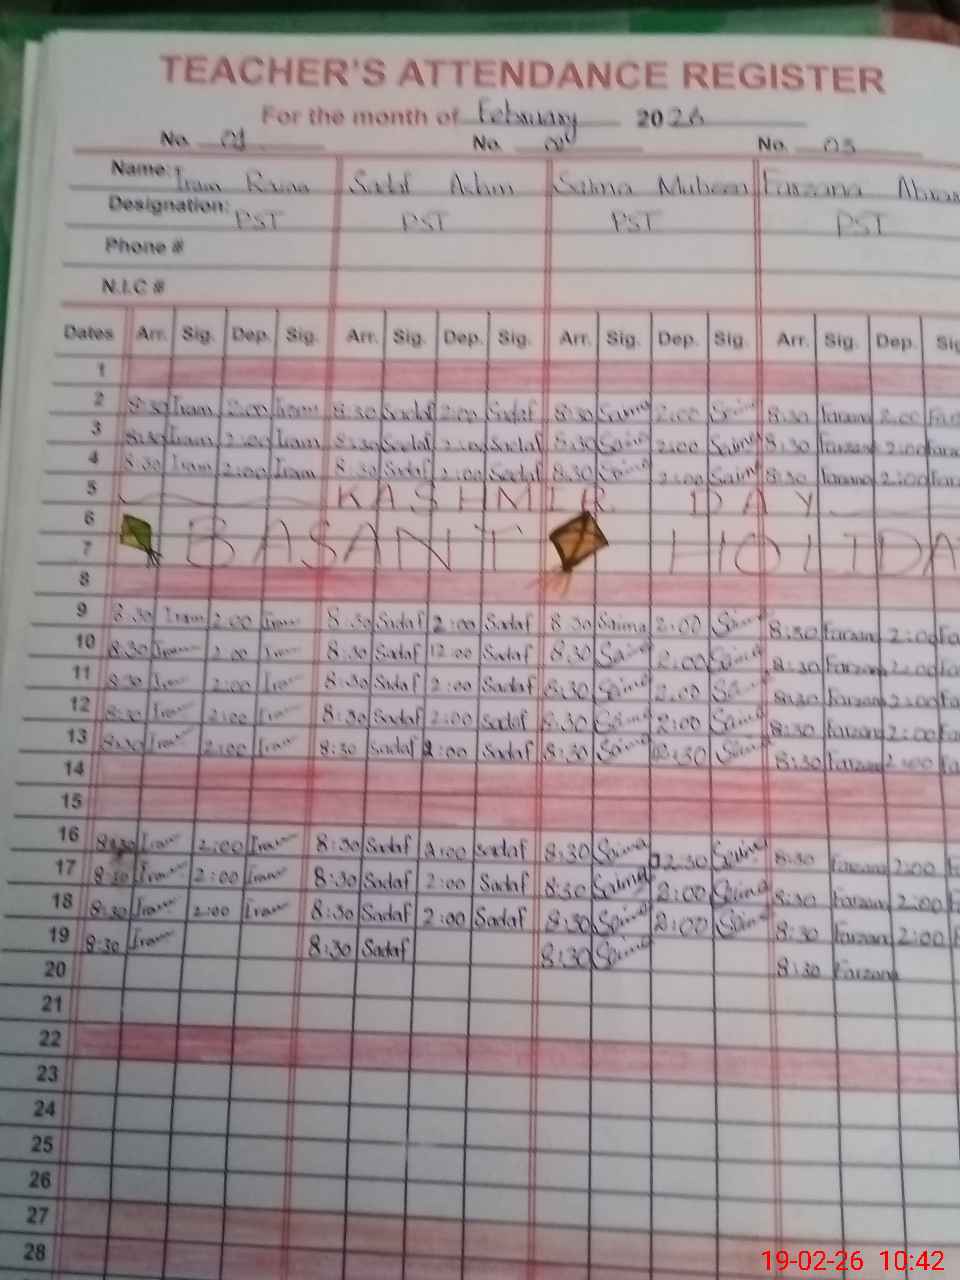 TEACHER'S ATTENDANCE REGISTER
For the month of February 2026
No. 01 No. No. 03
Name: Iram Sadaf Saima Mubeen Farzana
Designation: PST PST PST PST
Phone #
N.I.C #
Dates Arr. Sig. Dep. Sig. Arr. Sig. Dep. Sig. Arr. Sig. Dep. Sig. Arr. Sig. Dep. Sig
1
2 8:30 Iram 2:00 Iram 8:30 Sadaf 2:00 Sadaf 8:30 Saima 2:00 Saima 8:30 Farzan 2:00 Far
3 8:30 Iram 2:00 Iram 8:30 Sadaf 2:00 Sadaf 8:30 Saima 2:00 Saima 8:30 Farzan 2:00 Fara
4 8:30 Iram 2:00 Iram 8:30 Sadaf 2:00 Sadaf 8:30 Saima 2:00 Saima 8:30 Farzana 2:00 Far
5 KASHMIR DAY
6
7 BASANT HOLIDA
8
9 8:30 Iram 2:00 Iram 8:30 Sadaf 2:00 Sadaf 8:30 Saima 2:00 Saima 8:30 Farzan 2:00 Fa
10 8:30 Iram 2:00 Iram 8:30 Sadaf 12:00 Sadaf 8:30 Saima 2:00 Saima 8:30 Farzan 2:00 Fa
11 8:30 Iram 2:00 Iram 8:30 Sadaf 2:00 Sadaf 8:30 Saima 2:00 Saima 8:30 Farzan 2:00 Fa
12 8:30 Iram 2:00 Iram 8:30 Sadaf 2:00 Sadaf 8:30 Saima 2:00 Saima 8:30 Farzana 2:00 Fa
13 8:30 Iram 2:00 Iram 8:30 Sadaf 2:00 Sadaf 8:30 Saima 12:30 Saima 8:30 Farzan 2:00 Fa
14
15
16 8:30 Iram 2:00 Iram 8:30 Sadaf 2:00 Sadaf 8:30 Saima 12:30 Saima 8:30 Farzana 2:00 F
17 8:30 Iram 2:00 Iram 8:30 Sadaf 2:00 Sadaf 8:30 Saima 2:00 Saima 8:30 Farzan 2:00 F
18 8:30 Iram 2:00 Iram 8:30 Sadaf 2:00 Sadaf 8:30 Saima 2:00 Saima 8:30 Farzan 2:00 F
19 8:30 Iram 8:30 Sadaf 8:30 Saima 8:30 Farzana
20
21
22
23
24
25
26
27
28
19-02-26 10:42